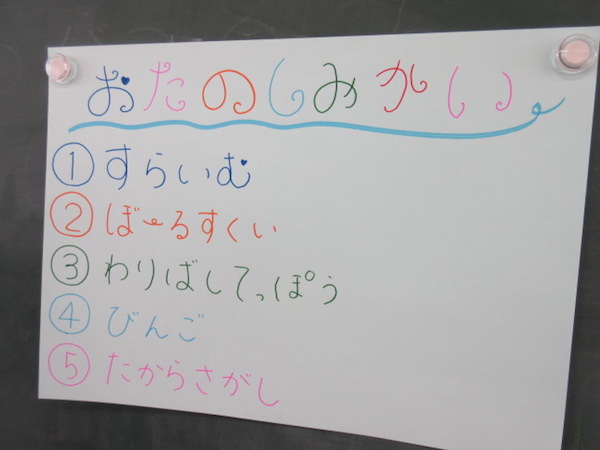 おたのしみかい
①すらいむ
②ぼーるすくい
③わりばしてっぽう
④びんご
⑤たからさがし